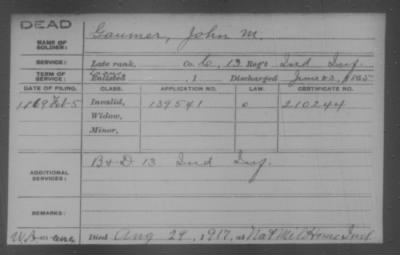 DEAD
NAME OF SOLDIER: Gaumer, John M.
SERVICE: Late rank, Co. C, 13 Reg't Ind Inf.
TERM OF SERVICE: Enlisted , 1 Discharged June 23, 1865
DATE OF FILING. CLASS. APPLICATION NO. LAW. CERTIFICATE NO.
1869 Feb 5 Invalid, 139541 0 210244
Widow,
Minor,
ADDITIONAL SERVICES: B & D 13 Ind Inf.
REMARKS:
Died Aug 29, 1917, at Nat Mil Home Ind